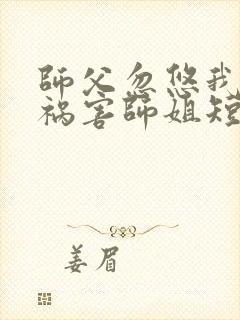 師父忽悠我
禍害師姐短
姜眉